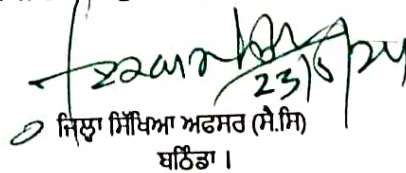 23/5/24
ਜ਼ਿਲ੍ਹਾ ਸਿੱਖਿਆ ਅਫਸਰ (ਸੈ.ਸਿ)
ਬਠਿੰਡਾ ।